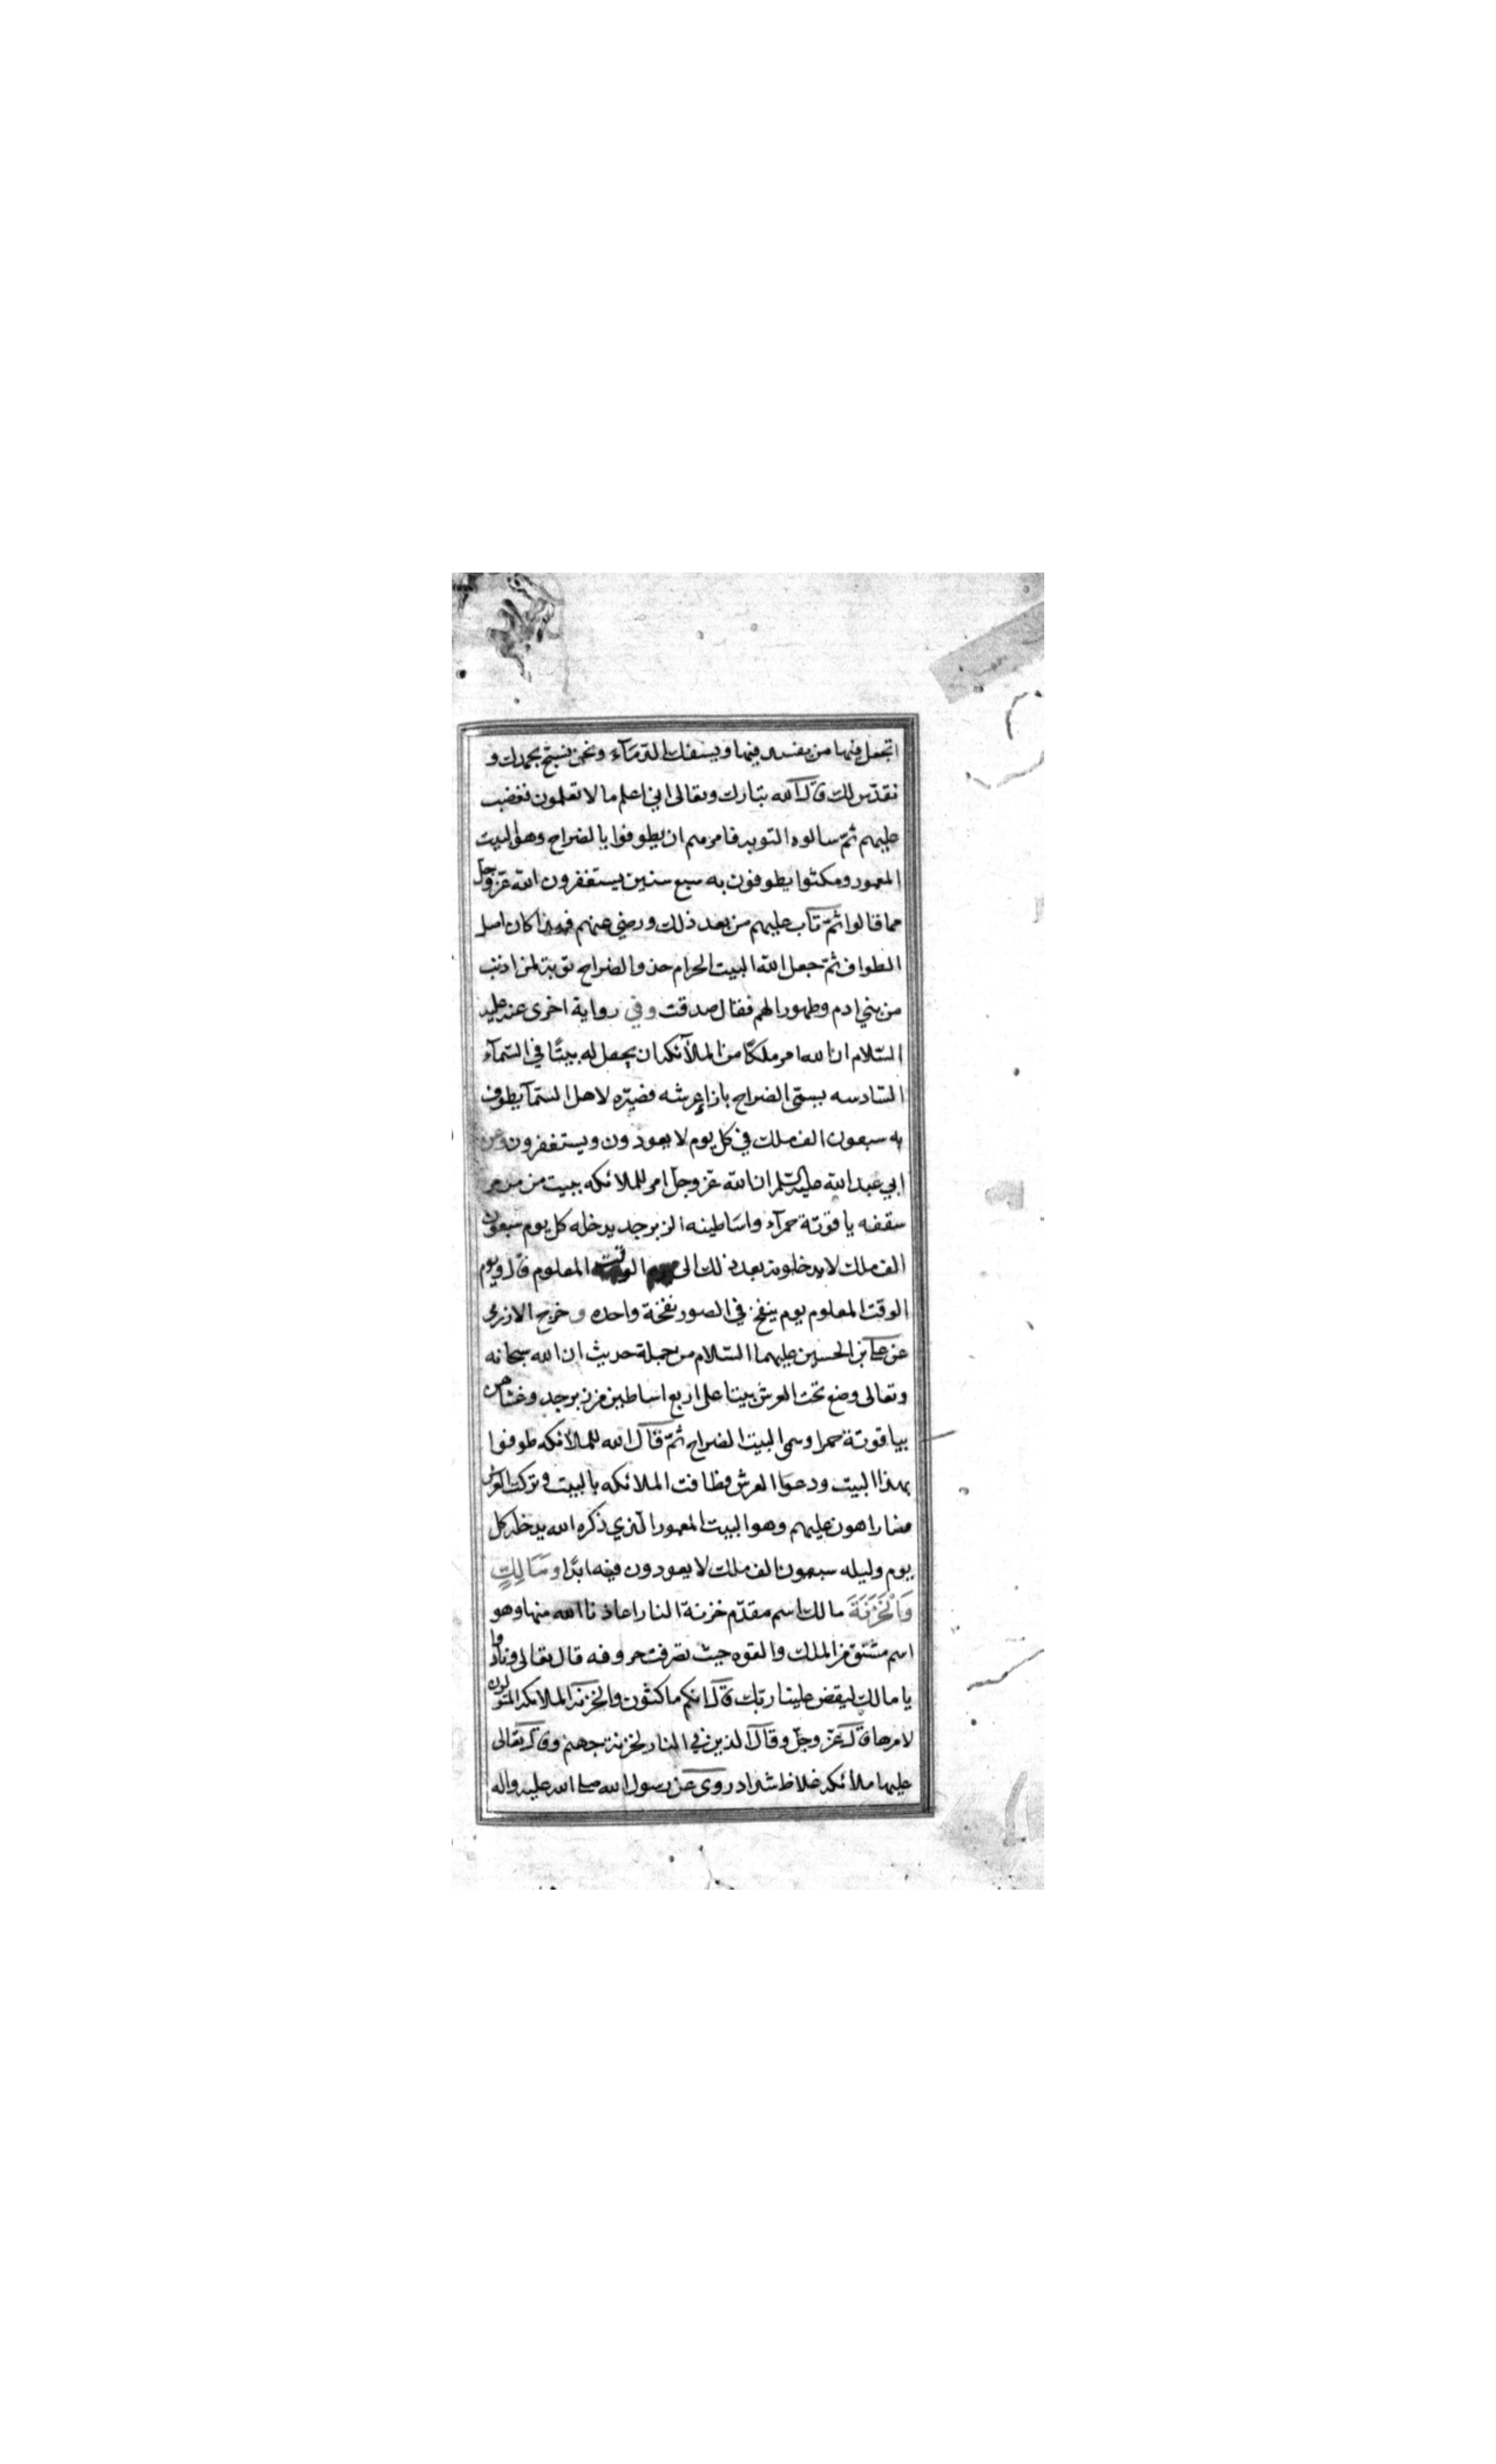 اتجعل فيها من يفسد فيها ويسفك الدمآء ونحن نسبّح بحمدك و
نقدّس لك قال الله تبارك وتعالى اني اعلم ما لا تعلمون فغضب
عليهم ثمّ سالوه التوبه فامرهم ان يطوفوا بالضراح وهو البيت
المعمور ومكثوا يطوفون به سبع سنين يستغفرون الله عزّ وجل
مما قالوا ثمّ تاب عليهم من بعد ذلك ورضي عنهم فهذا كان اصل
الطواف ثمّ جعل الله البيت الحرام حذو الضراح توبة لمن اذنب
من بني ادم وطهورا لهم فقال صدقت وفي رواية اخرى عنه عليه
السّلام ان الله امر ملكًا من الملآئكه ان يجعل له بيتًا في السّمآء
السّادسه يسمّى الضراح بازا عرشه فصيّره لاهل السّمآ يطوف
به سبعون الف ملك في كل يوم لا يعودون ويستغفرون وعن
ابي عبد الله عليه السّلم ان الله عزّ وجلّ امر للملائكه ببيت من مرمر
سقفه ياقوتة حمرآء واساطينه الزبرجد يدخله كل يوم سبعون
الف ملك لا يدخلونه بعد ذلك الى يوم الوقت المعلوم قال ويوم
الوقت المعلوم يوم ينفخ في الصور نفخة واحده و خرج الازرقى
عن على بن الحسين عليهما السّلام من جملة حديث ان الله سبحانه
وتعالى وضع تحت العرش بيتا على اربع اساطين من زبرجد وغشاهن
بياقوتة حمرا وسمى البيت الضراح ثمّ قال الله للملائكه طوفوا
بهذا البيت ودعوا العرش فطافت الملائكه بالبيت وتركت العرش
فصار اهون عليهم وهو البيت المعمور الّذي ذكره الله يدخله كل
يوم وليله سبعون الف ملك لا يعودون فيه ابدًا وَمَالِكٍ
وَالْخَزَنَةَ مالك اسم مقدّم خزنة النار اعاذنا الله منها وهو
اسم مشتق من الملك والقوه حيث تصرفت حروفه قال تعالى ونادوا
يا مالك ليقض علينا ربّك قال انكم ماكثون والخزنة الملائكه المتولون
لامرها قال عزّ وجلّ وقال الذين في النار لخزنة جهنم وقال تعالى
عليها ملائكه غلاظ شداد روى عن رسول الله صلى الله عليه واله